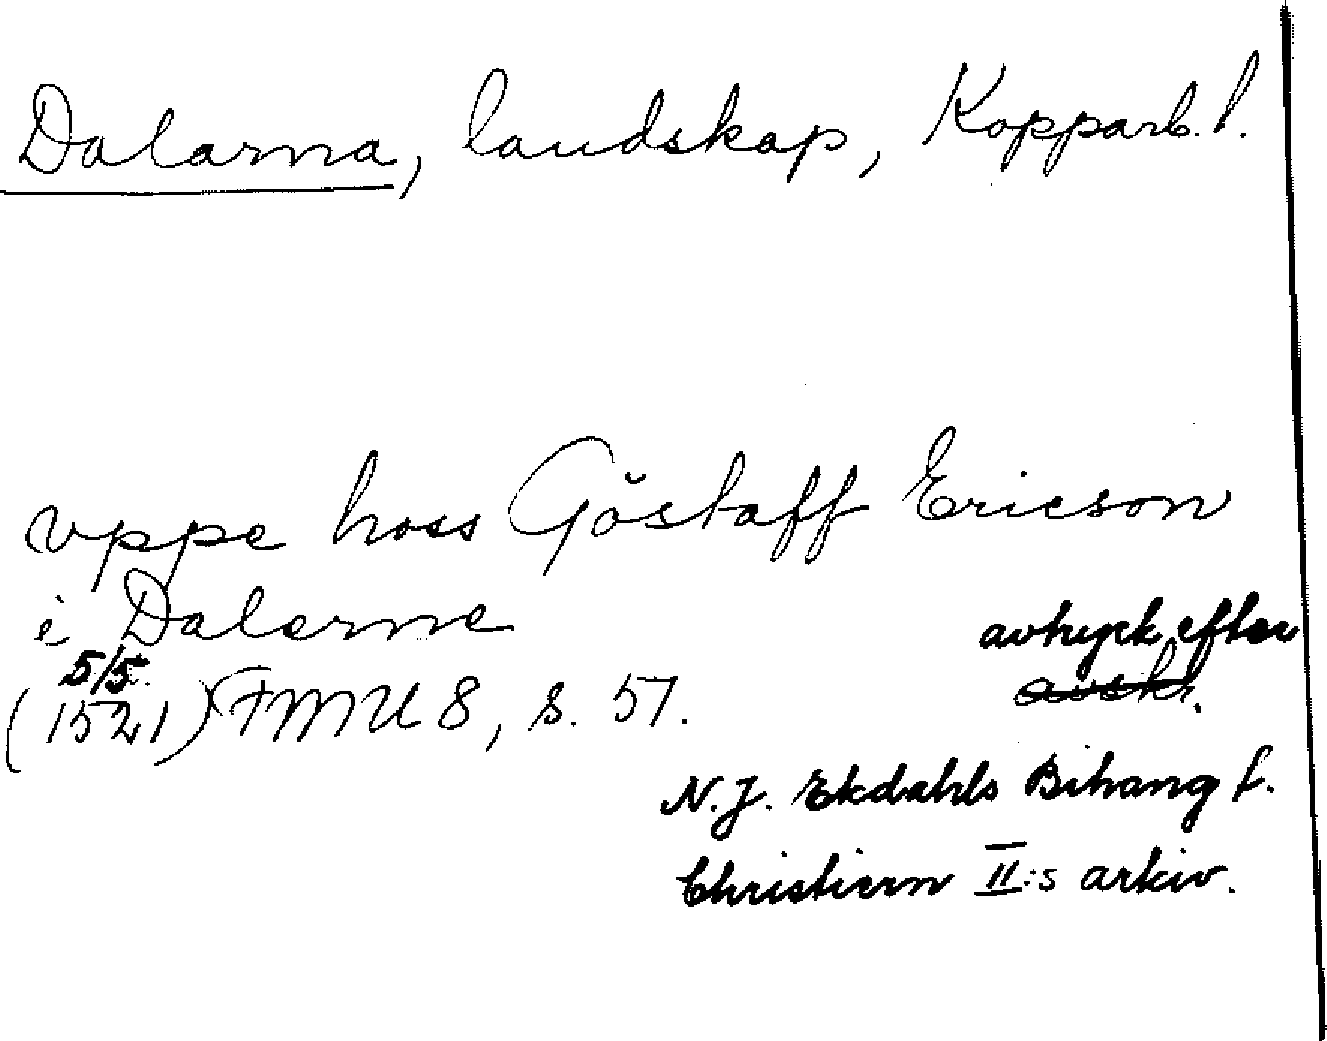 Dalarna, landskap, Kopparb. l.
vppe hoss Göstaff Ericson
i Dalerne
5/5.
(1521) FMU 8, s. 57.
avtryck efter
avskr.
N. J. Ekdahls Bihang t.
Christiern II:s arkiv.